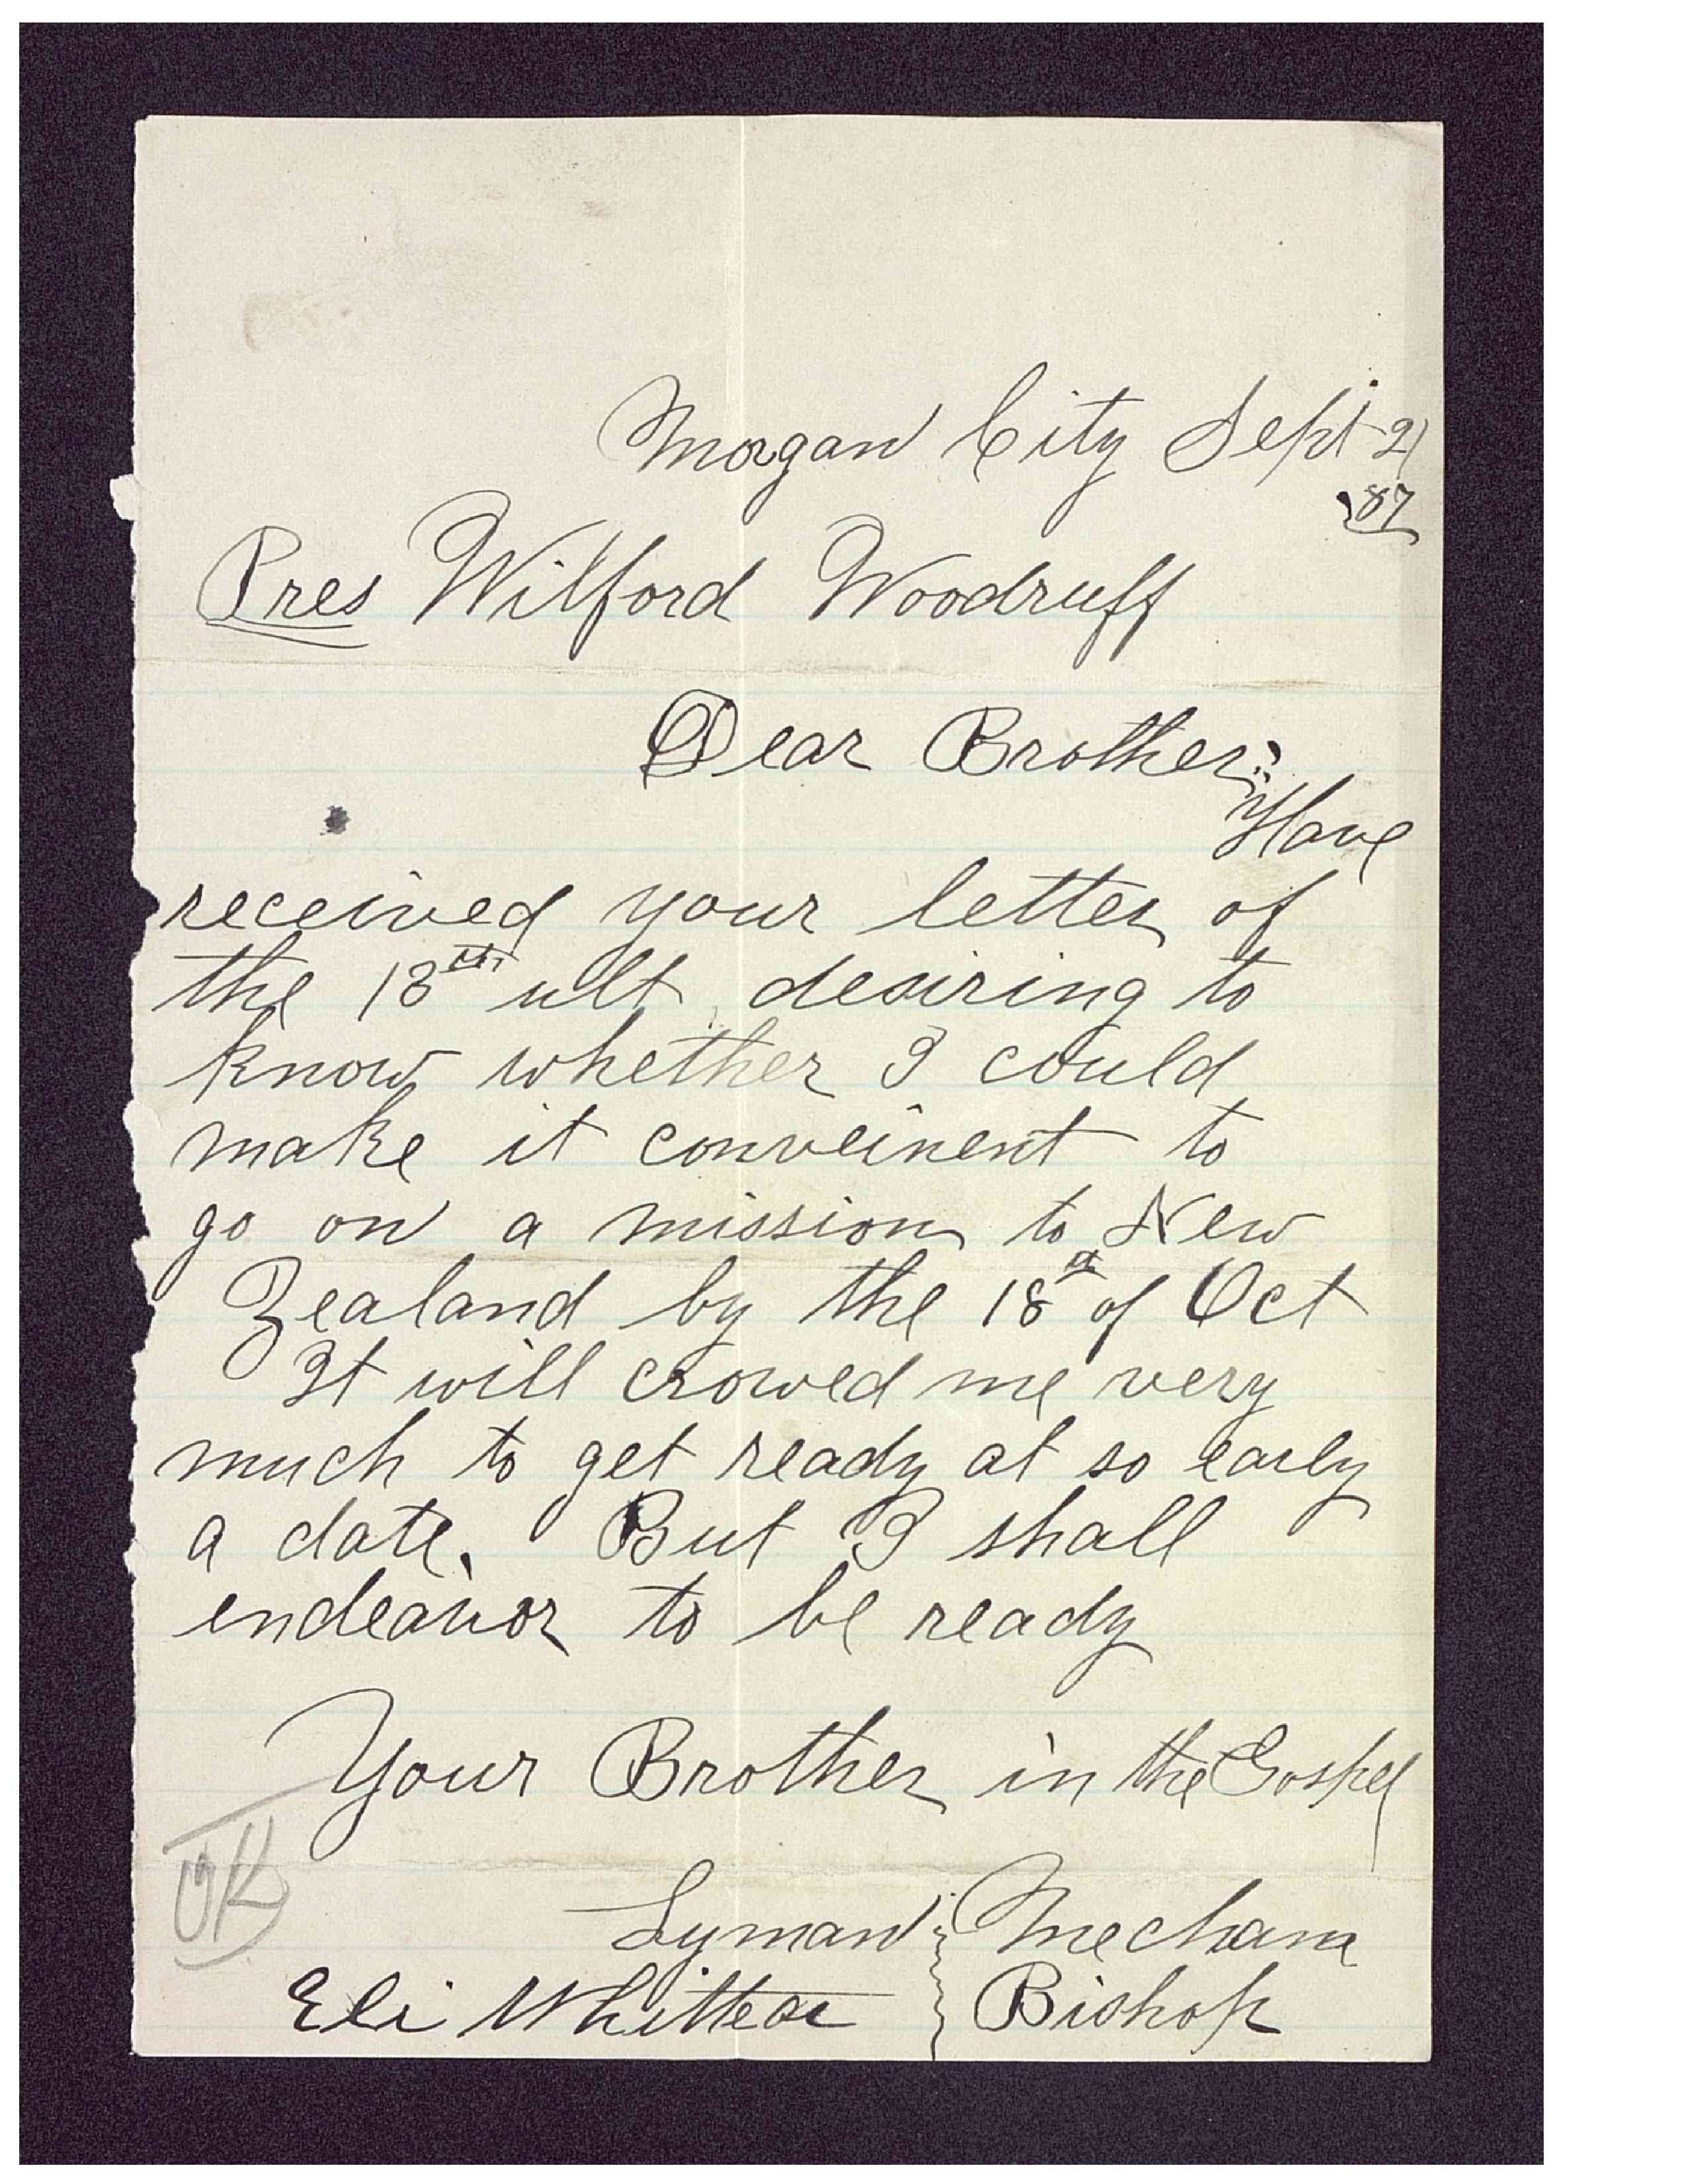 Morgan City Sept 21
'87
Pres Wilford Woodruff
Dear Brother:
Have
received your letter of
the 18th ult desiring to
know whether I could
make it conveinent to
go on a mission to New
Zealand by the 18th of Oct
It will crowed me very
much to get ready at so early
a date. But I shall
endeavor to be ready
Your Brother in the Gospel
OK
Lyman Mecham
Eli Whittear Bishop